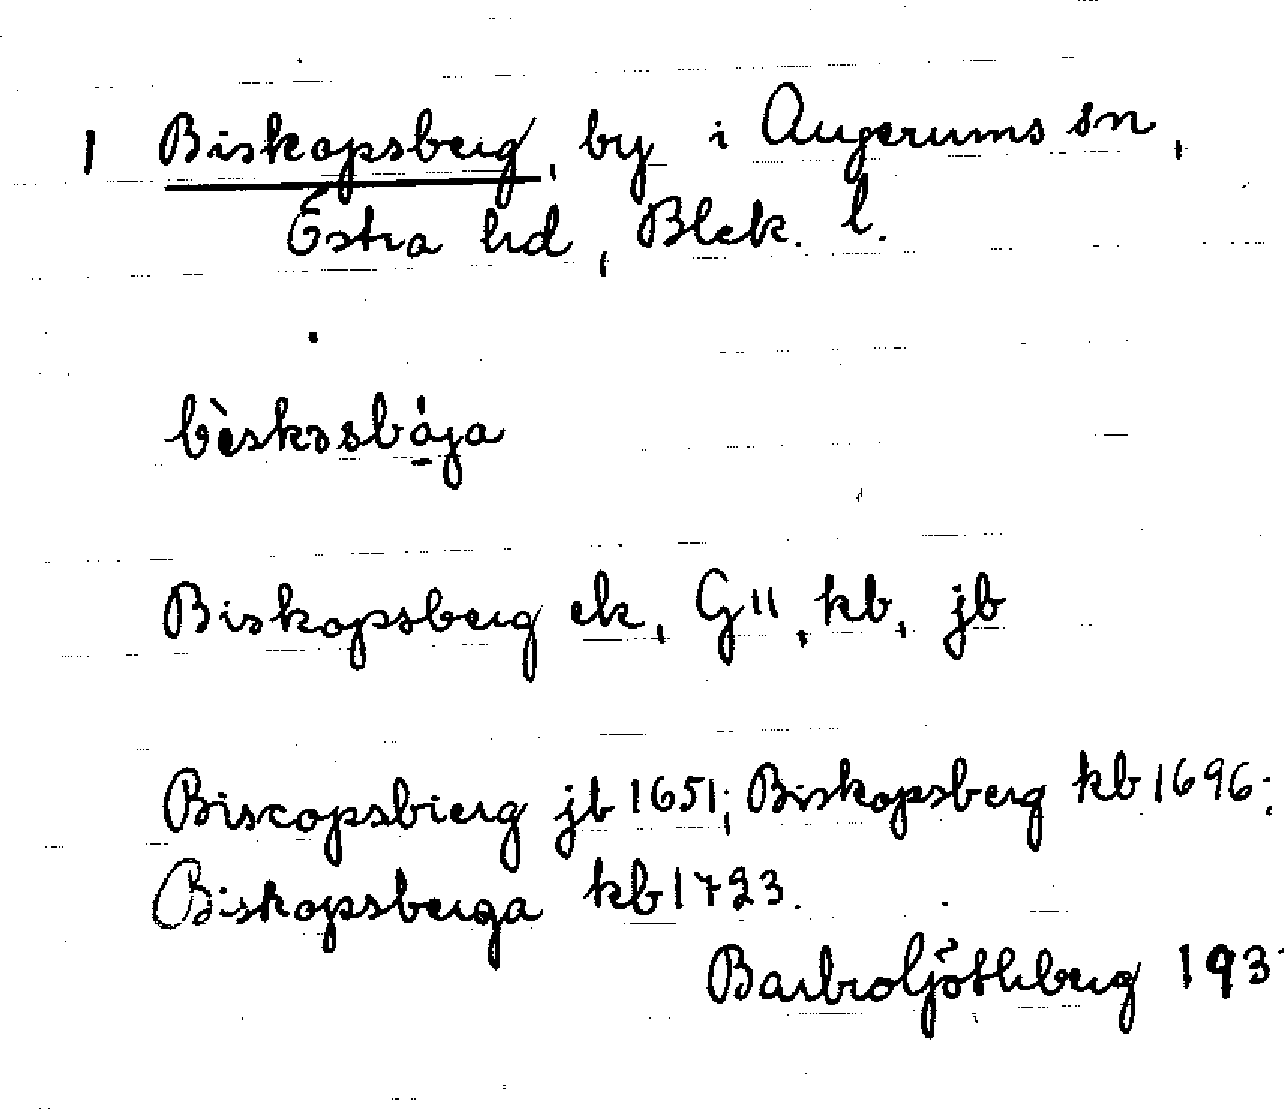 1 Biskopsberg, by i Augerums sn,
Östra hd, Blek. l.
bèskəsbája
Biskopsberg ek, G11, kb, jb
Biscopsbierg jb 1651; Biskopsberg kb 1696;
Biskopsberga kb 1723.
Barbro Göthberg 193